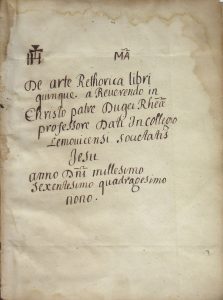 IHS MA
De arte Rethorica libri
quinque a Reverendo in
Christo patre Dugei Rhēæ
professore Dati In collegio
Lemovicensi societatis
Jesu
anno Dñi millesimo
sexentesimo quadragesimo
nono.